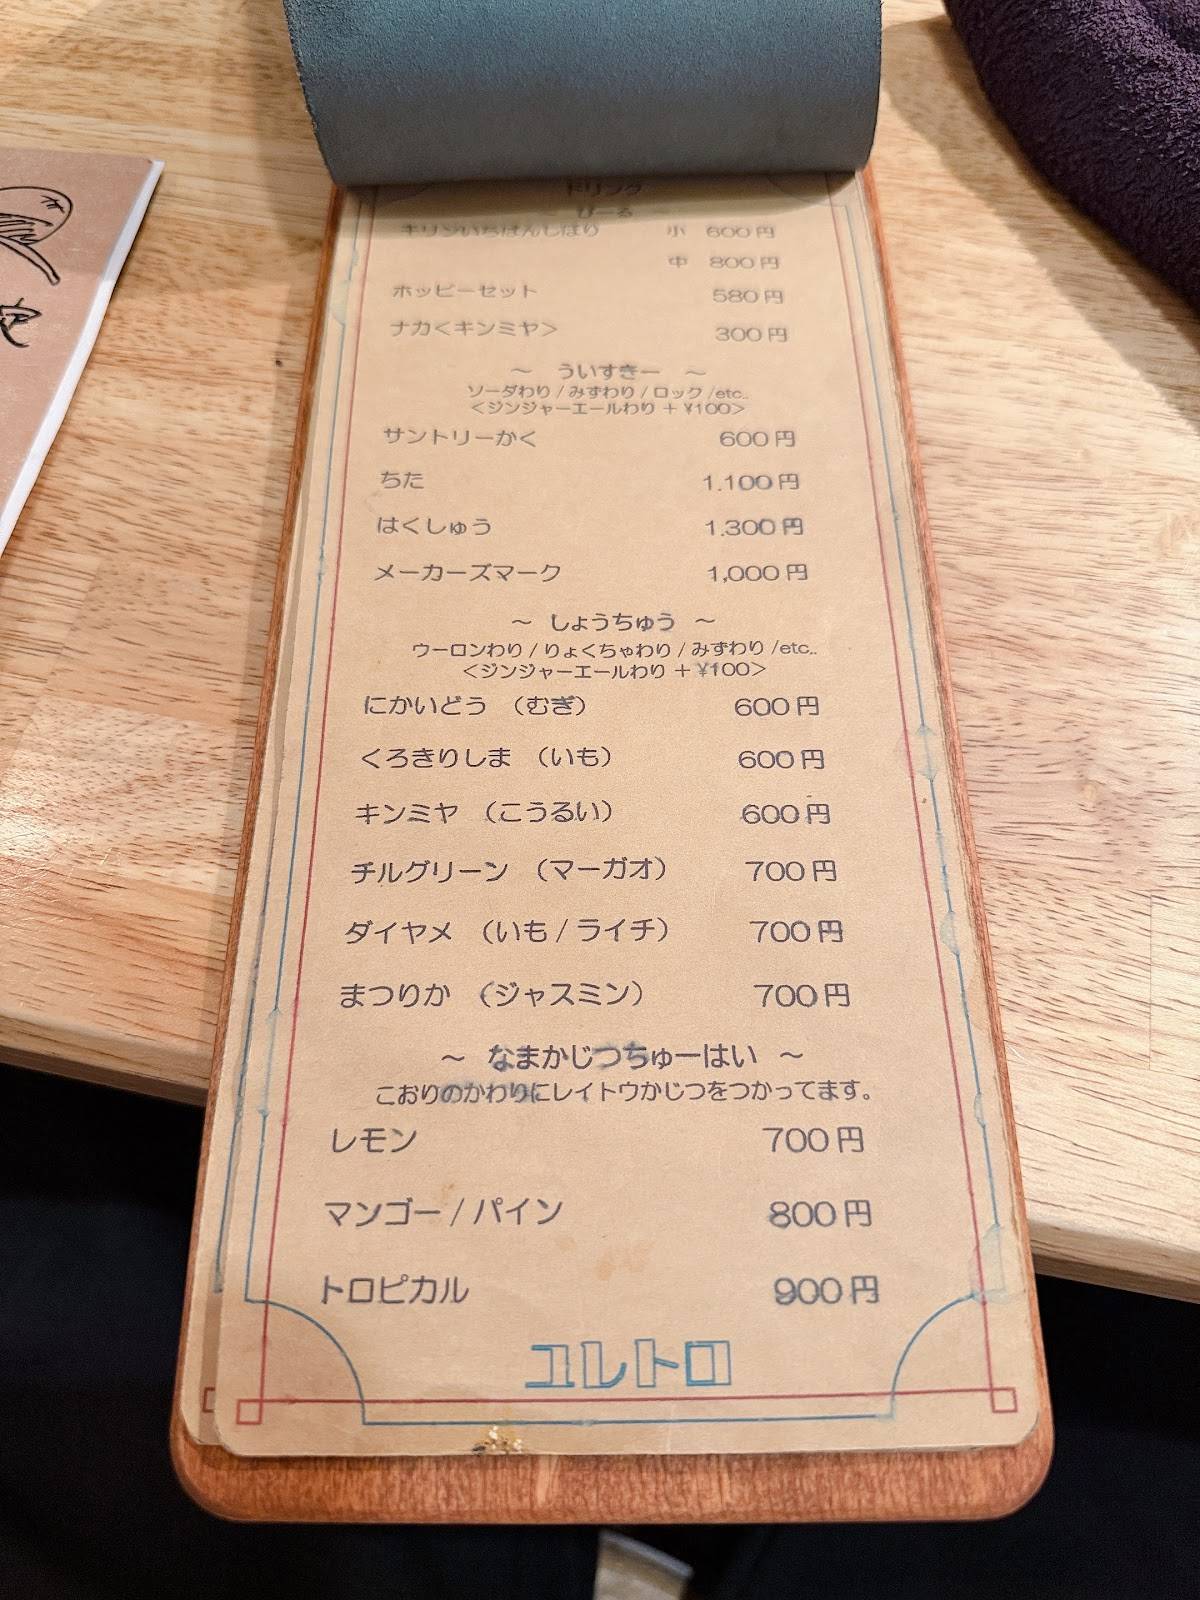 ドリンク
びーる
キリンいちばんしぼり 小 600円
中 800円
ホッピーセット 580円
ナカ<キンミヤ> 300円
～ ういすきー ～
ソーダわり / みずわり / ロック /etc..
<ジンジャーエールわり + ¥100>
サントリーかく 600円
ちた 1.100円
はくしゅう 1.300円
メーカーズマーク 1,000円
～ しょうちゅう ～
ウーロンわり / りょくちゃわり / みずわり /etc..
<ジンジャーエールわり + ¥100>
にかいどう (むぎ) 600円
くろきりしま (いも) 600円
キンミヤ (こうるい) 600円
チルグリーン (マーガオ) 700円
ダイヤメ (いも / ライチ) 700円
まつりか (ジャスミン) 700円
～ なまかじつちゅーはい ～
こおりのかわりにレイトウかじつをつかってます。
レモン 700円
マンゴー / パイン 800円
トロピカル 900円
ユレトロ